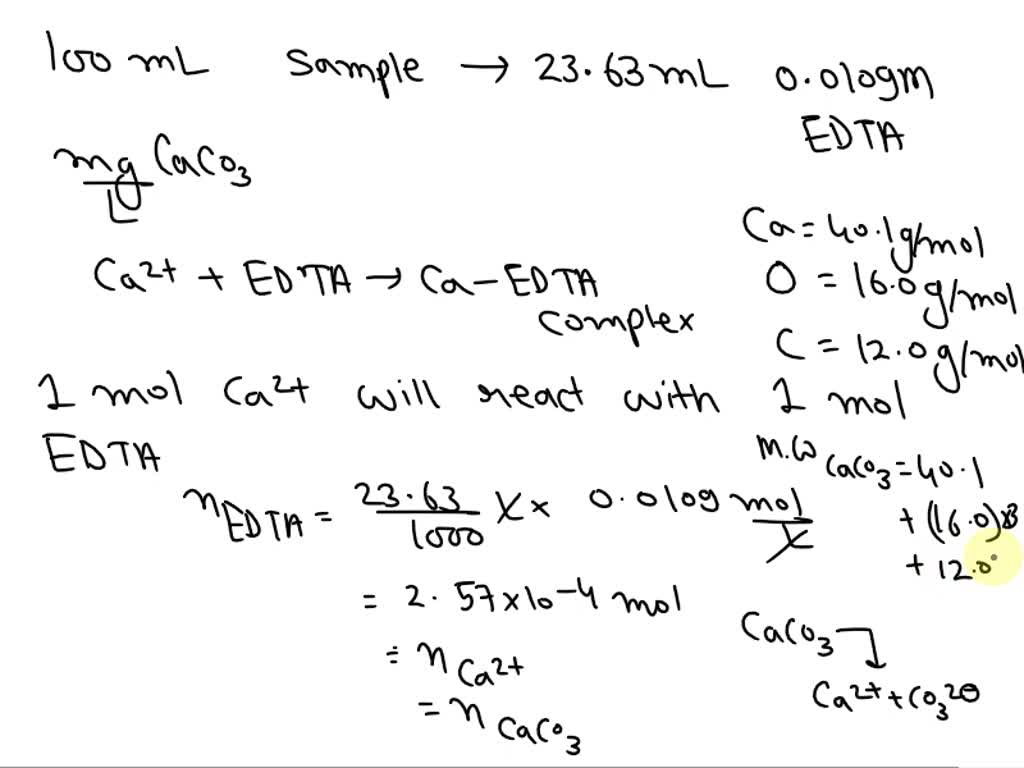 100 mL sample → 23.63 mL 0.0109M
EDTA
mg/L CaCO3
Ca = 40.1 g/mol
Ca2+ + EDTA → Ca-EDTA
complex
O = 16.0 g/mol
C = 12.0 g/mol
1 mol Ca2+ will react with 1 mol
EDTA
M.W CaCO3 = 40.1
+ (16.0)x3
+ 12.0
nEDTA = 23.63/1000 L x 0.0109 mol/L
= 2.57x10-4 mol
= nCa2+
= nCaCO3
CaCO3
Ca2+ + CO3 2⊖